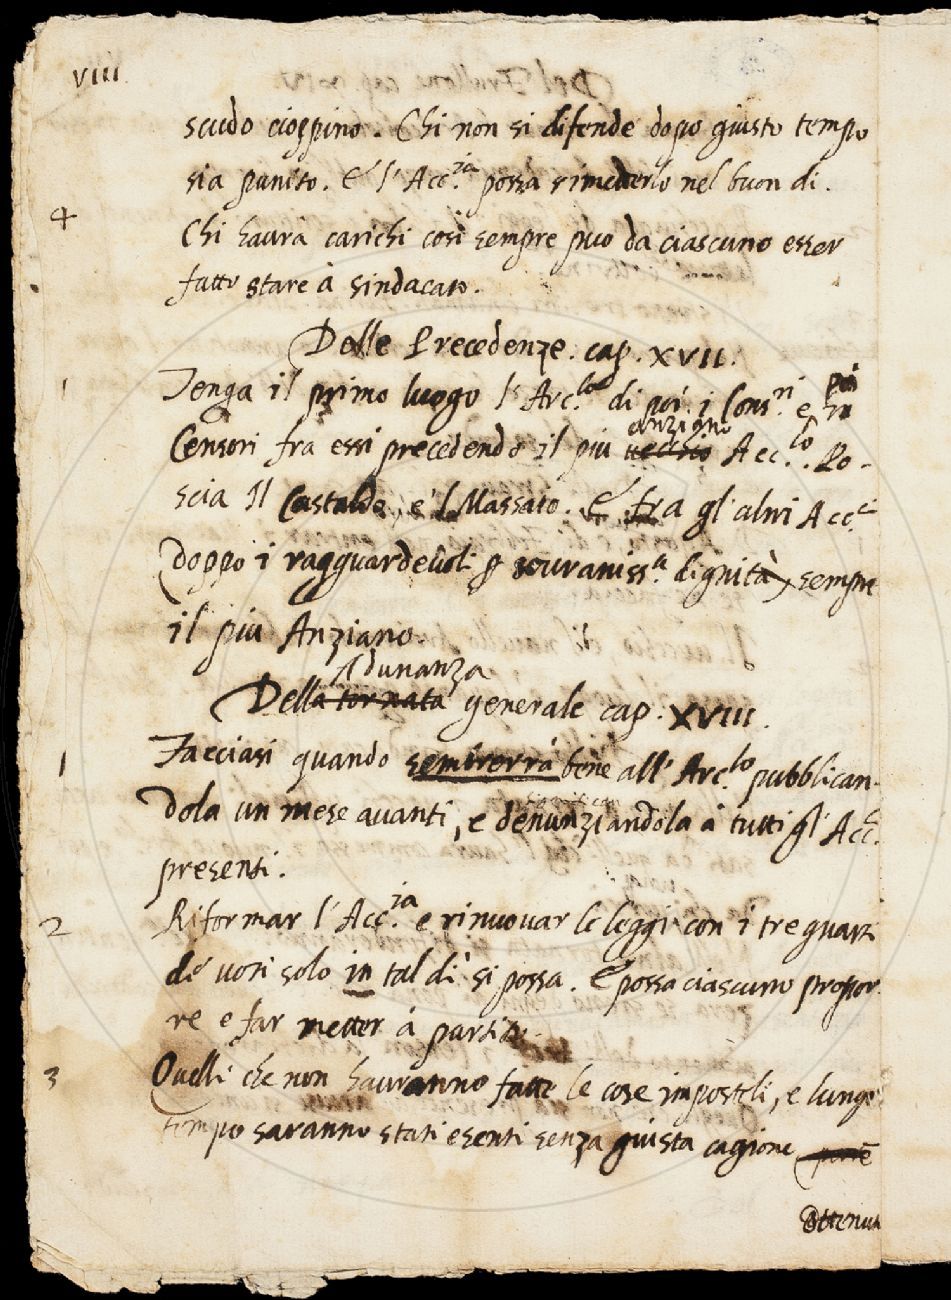 VIII
scudo cioppino. Chi non si difende dopo giusto tempo
sia punito. E l'Acc.ia possa rimetterlo nel buon di.
4 Chi haurà carichi così sempre puo da ciascuno esser
fatto stare à sindacato.
Delle Precedenze. cap. XVII.
1 Tenga il primo luogo l'Arc.lo di poi i Cons.ri e poi
anzigno
Censori fra essi precedendo il piu vecchio Acc.co. Po-
scia Il Castaldo, e 'l Massaio. E fra gl'altri Acc.ci
doppo i ragguardevoli p dignità, sempre
il più Anziano.
Adunanza
Della tornata generale cap. XVIII.
1 Facciasi quando sembrerrà bene all'Arc.lo pubblican-
dola un mese avanti, e denunziandola à tutti gl'Acc.
presenti.
2 Riformar l'Acc.ia e rinuovar le leggi con i tre quarti
de' voti solo in tal dì si possa. E possa ciascuno propor-
re e far metter à partito.
3 Quelli che non hauranno fatte le cose imposteli, e lungo
tempo saranno stati esenti senza giusta cagione
Ottenut